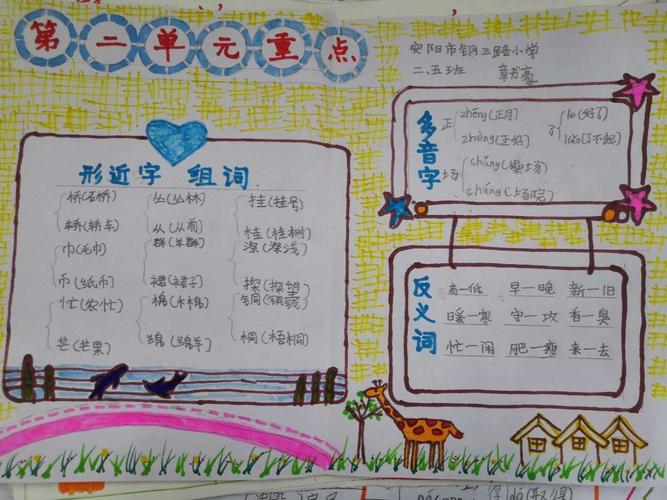 第二单元重点
安阳市钢三路小学
二.五班
形近字 组词
桥(石桥) 丛(丛林) 挂(挂号)
轿(轿车) 从(从前) 桂(桂树)
巾(毛巾) 群(羊群) 深(深浅)
币(纸币) 裙(裙子) 探(探望)
忙(农忙) 棉(木棉) 铜(铜号)
芒(芒果) 绵(绵羊) 桐(梧桐)
多音字
正 zhēng(正月) 了 le(好了)
zhèng(正好) liǎo(了不起)
场 chǎng(操场)
cháng(场院)
反义词
高—低 早—晚 新—旧
暖—寒 守—攻 香—臭
忙—闲 肥—瘦 来—去